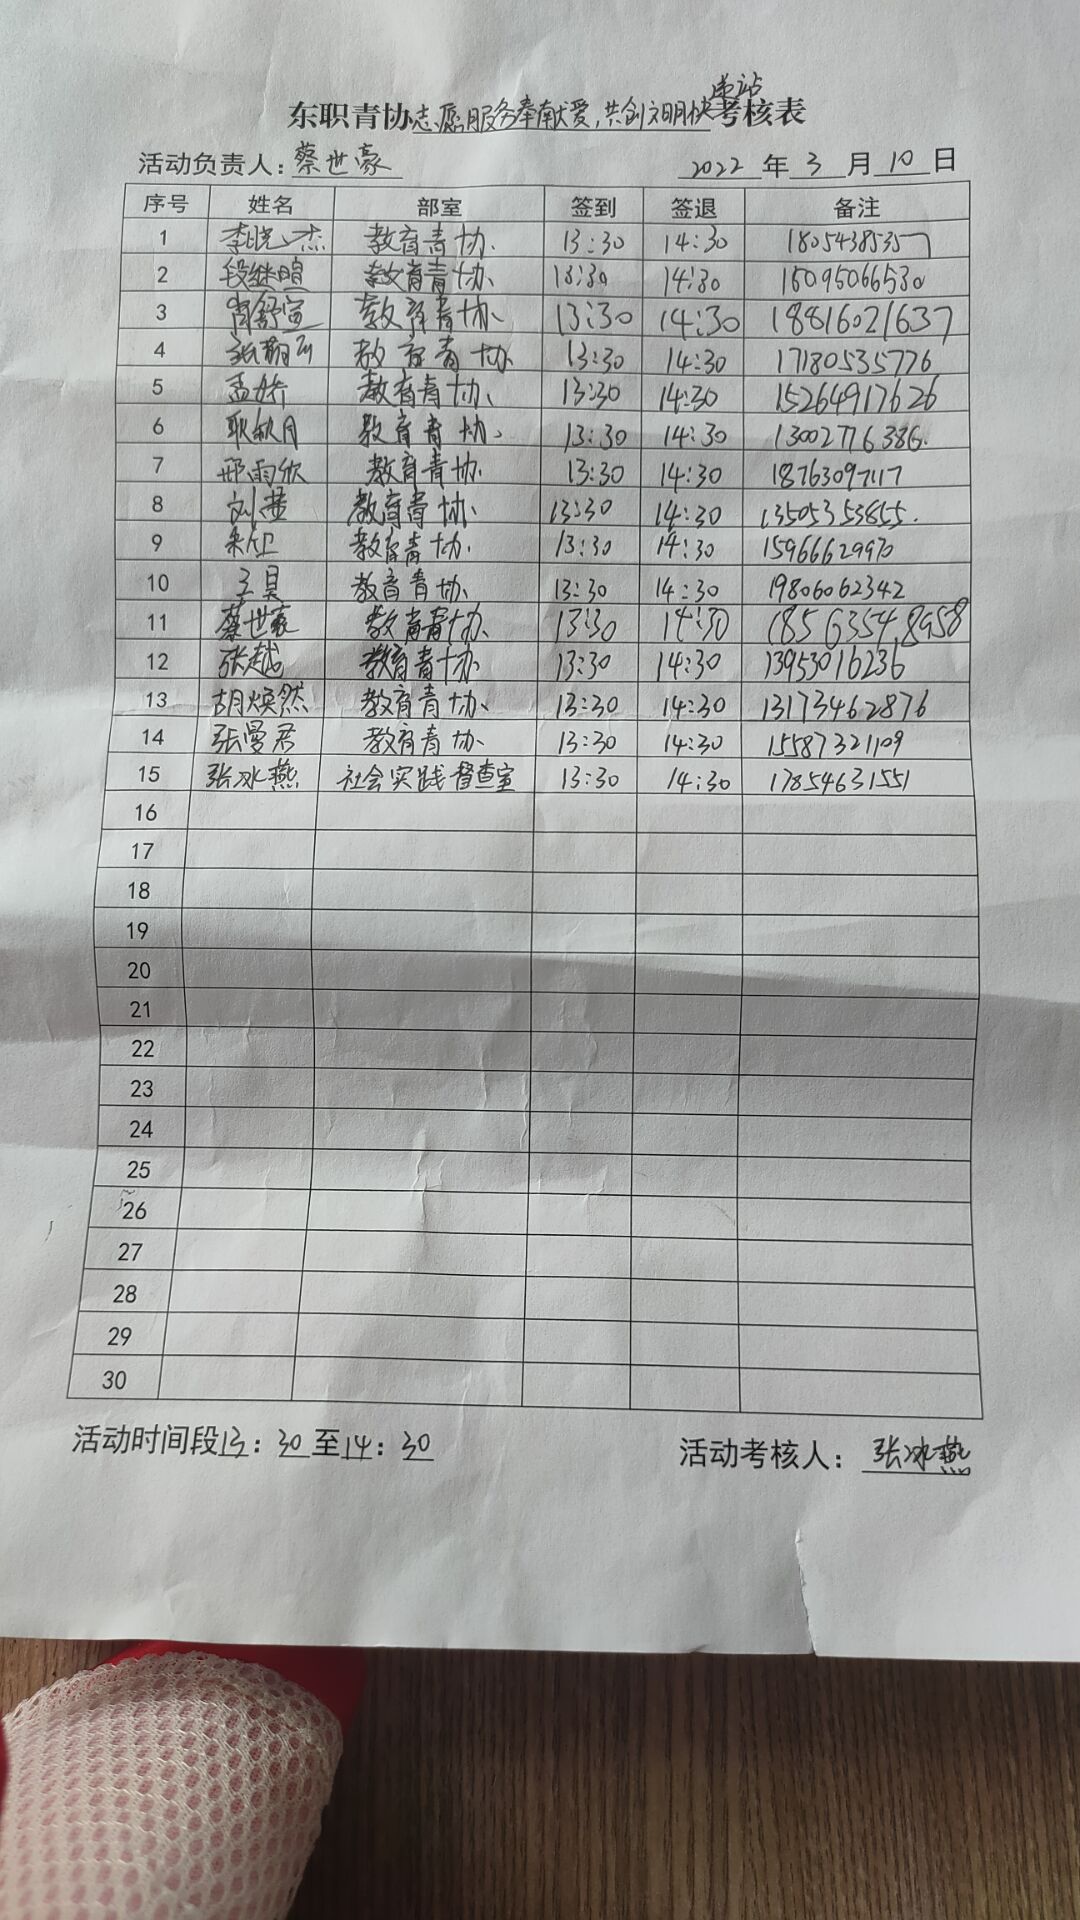 东职青协志愿服务奉献爱,共创文明快递站考核表
活动负责人:蔡世豪 2022 年 3 月 10 日
序号 姓名 部室 签到 签退 备注
1 李晓杰 教育青协 13:30 14:30 18054385357
2 段继暄 教育青协 13:30 14:30 15095066530
3 肖舒宣 教育青协 13:30 14:30 18816021637
4 教育青协 13:30 14:30 17180535776
5 孟娇 教育青协 13:30 14:30 15264917626
6 耿秋月 教育青协 13:30 14:30 13002776386
7 邢雨欣 教育青协 13:30 14:30 18763097117
8 刘 教育青协 13:30 14:30 13505353855
9 教育青协 13:30 14:30 15966629970
10 王昊 教育青协 13:30 14:30 19806062342
11 蔡世豪 教育青协 13:30 14:30 18563548958
12 张越 教育青协 13:30 14:30 13953016236
13 胡焕然 教育青协 13:30 14:30 13173462876
14 张曼君 教育青协 13:30 14:30 15587321109
15 张冰燕 社会实践督查室 13:30 14:30 17854631551
16
17
18
19
20
21
22
23
24
25
26
27
28
29
30
活动时间段13:30至14:30 活动考核人:张冰燕